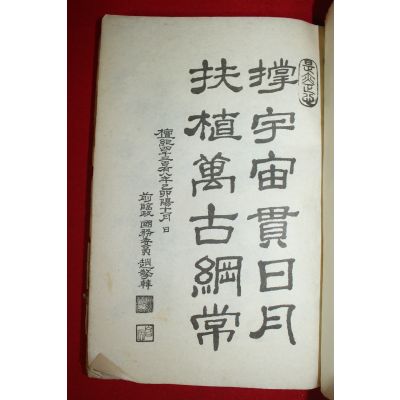 撑宇宙貫日月
扶植萬古綱常
檀紀四千三百有八年乙卯陽十月 日
前臨政國務委員 趙擎韓